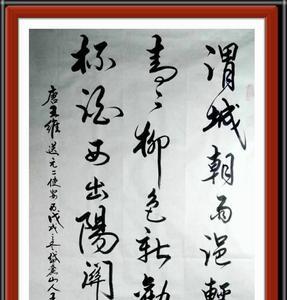 渭城朝雨浥轻
青青柳色新劝
杯酒西出阳关
唐王维送元二使安西戊戌